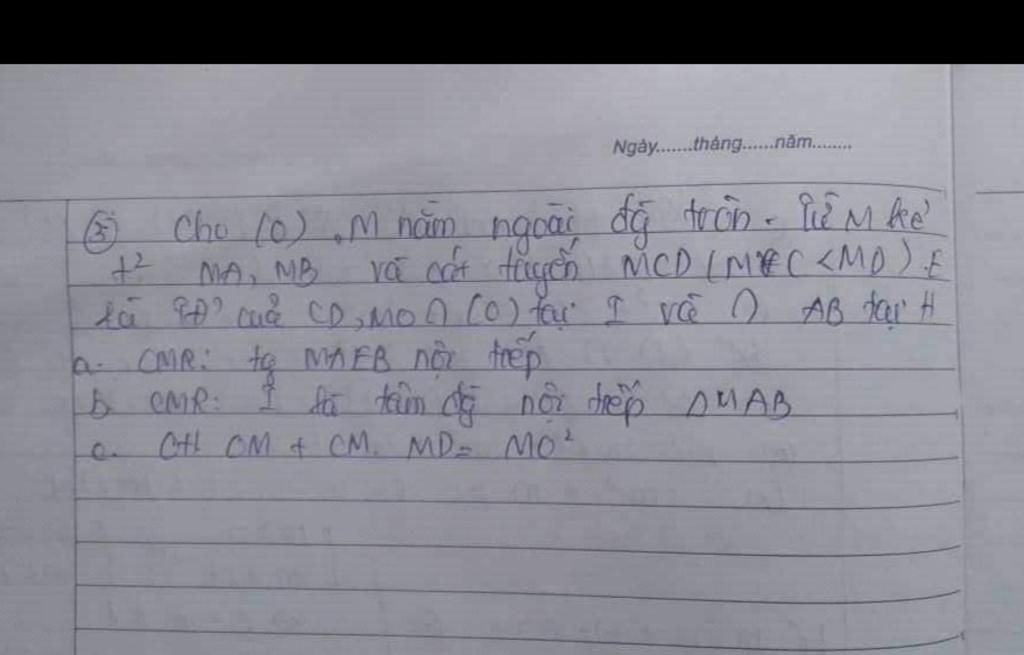 Ngày.......tháng......năm........
5 Cho (O). M nằm ngoài đg tròn. Từ M kẻ
t² MA, MB và cát tuyến MCD (MC < MD). E
là TĐ' của CD, MO ∩ (O) tại I và ∩ AB tại H
a. CMR: tg MAEB nội tiếp
b CMR: I là tâm đg nội tiếp ΔMAB
c. OH OM + CM. MD = MO²